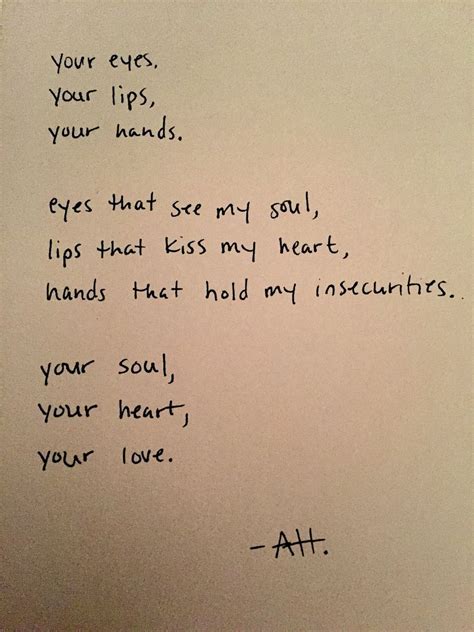 your eyes,
your lips,
your hands.
eyes that see my soul,
lips that kiss my heart,
hands that hold my insecurities.
your soul,
your heart,
your love.
-AH.